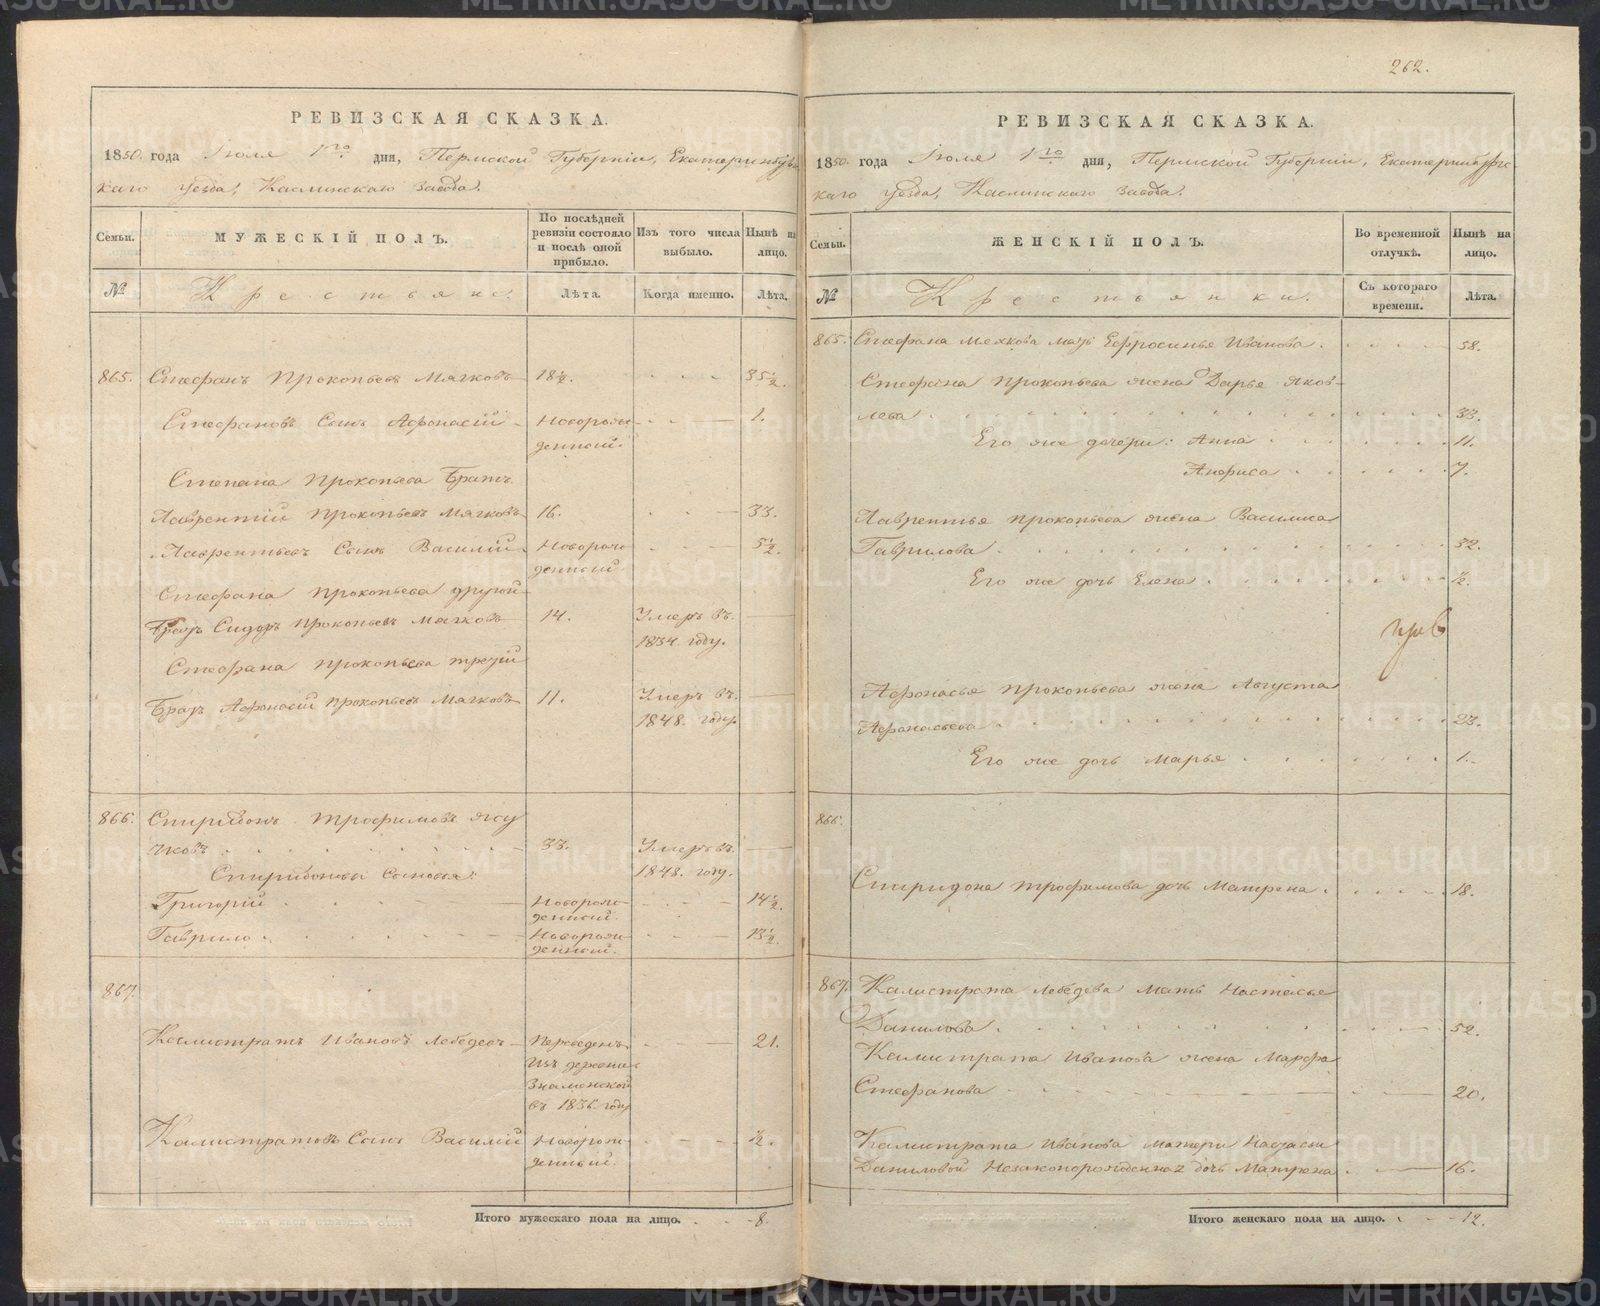 262.
РЕВИЗСКАЯ СКАЗКА.
1850. года Іюля 1го дня, Пермской Губерніи, Екатеринбургс
каго уезда, Каслинскаго Завода.
Семьи.
МУЖЕСКІЙ ПОЛЪ.
По послѣдней ревизіи состояло и послѣ оной прибыло.
Изъ того числа выбыло.
Нынѣ на лицо.
№
Крестьяне.
Лѣта.
Когда именно.
Лѣта.
865. Стефанъ Прокопьевъ Мягковъ 18½. 35½.
Стефановъ Сынъ Афонасій Новорож- 1.
денный.
Степана Прокопьева Братъ
Лаврентій Прокопьевъ Мягковъ 16. 33.
Лаврентьевъ Сынъ Василій Новорож- 5½.
денный.
Стефана Прокопьева другой
Братъ Сидоръ Прокопьевъ Мягковъ 14. Умеръ въ
1834. году.
Стефана Прокопьева третій
Братъ Афонасій Прокопьевъ Мягковъ 11. Умеръ въ
1848. году
866. Спиридонъ Трофимовъ
чковъ 33. Умеръ въ
1848. году.
Спиридоновы Сыновья:
Григорій Новорож- 14½.
денный.
Гаврило Новорож- 13½.
денный.
867.
Калистратъ Ивановъ Лебедевъ Переведенъ 21.
изъ деревни
Знаменской
въ 1836. году
Калистратовъ Сынъ Василій Новорож- ½.
денный.
Итого мужескаго пола на лицо. 8.
РЕВИЗСКАЯ СКАЗКА.
1850. года Іюля 1го дня, Пермской Губерніи, Екатеринбургс
каго Уезда, Каслинскаго Завода.
Семьи.
ЖЕНСКІЙ ПОЛЪ.
Во временной отлучкѣ.
Нынѣ на лицо.
№
Крестьянки.
Съ котораго времени.
Лѣта.
865. Стефана Мяхкова мать Ефросинья Иванова 58.
Стефана Прокопьева жена Дарья Яков-
лева 33.
Его же дочери: Анна 11.
Анфиса 7.
Лаврентья Прокопьева жена Василиса
Гаврилова 32.
Его же дочь Елена ½.
Афонасья Прокопьева жена Августа
Афонасьева 23.
Его же дочь Марья 1.
866.
Спиридона Трофимова дочь Матрена 18.
867. Калистрата Лебедева Мать Настасья
Данилова 52.
Калистрата Иванова жена Марфа
Стефанова 20.
Калистрата Иванова матери Настасьи
Даниловой Незаконорожденная дочь Матрена 16.
Итого женскаго пола на лицо. 12.